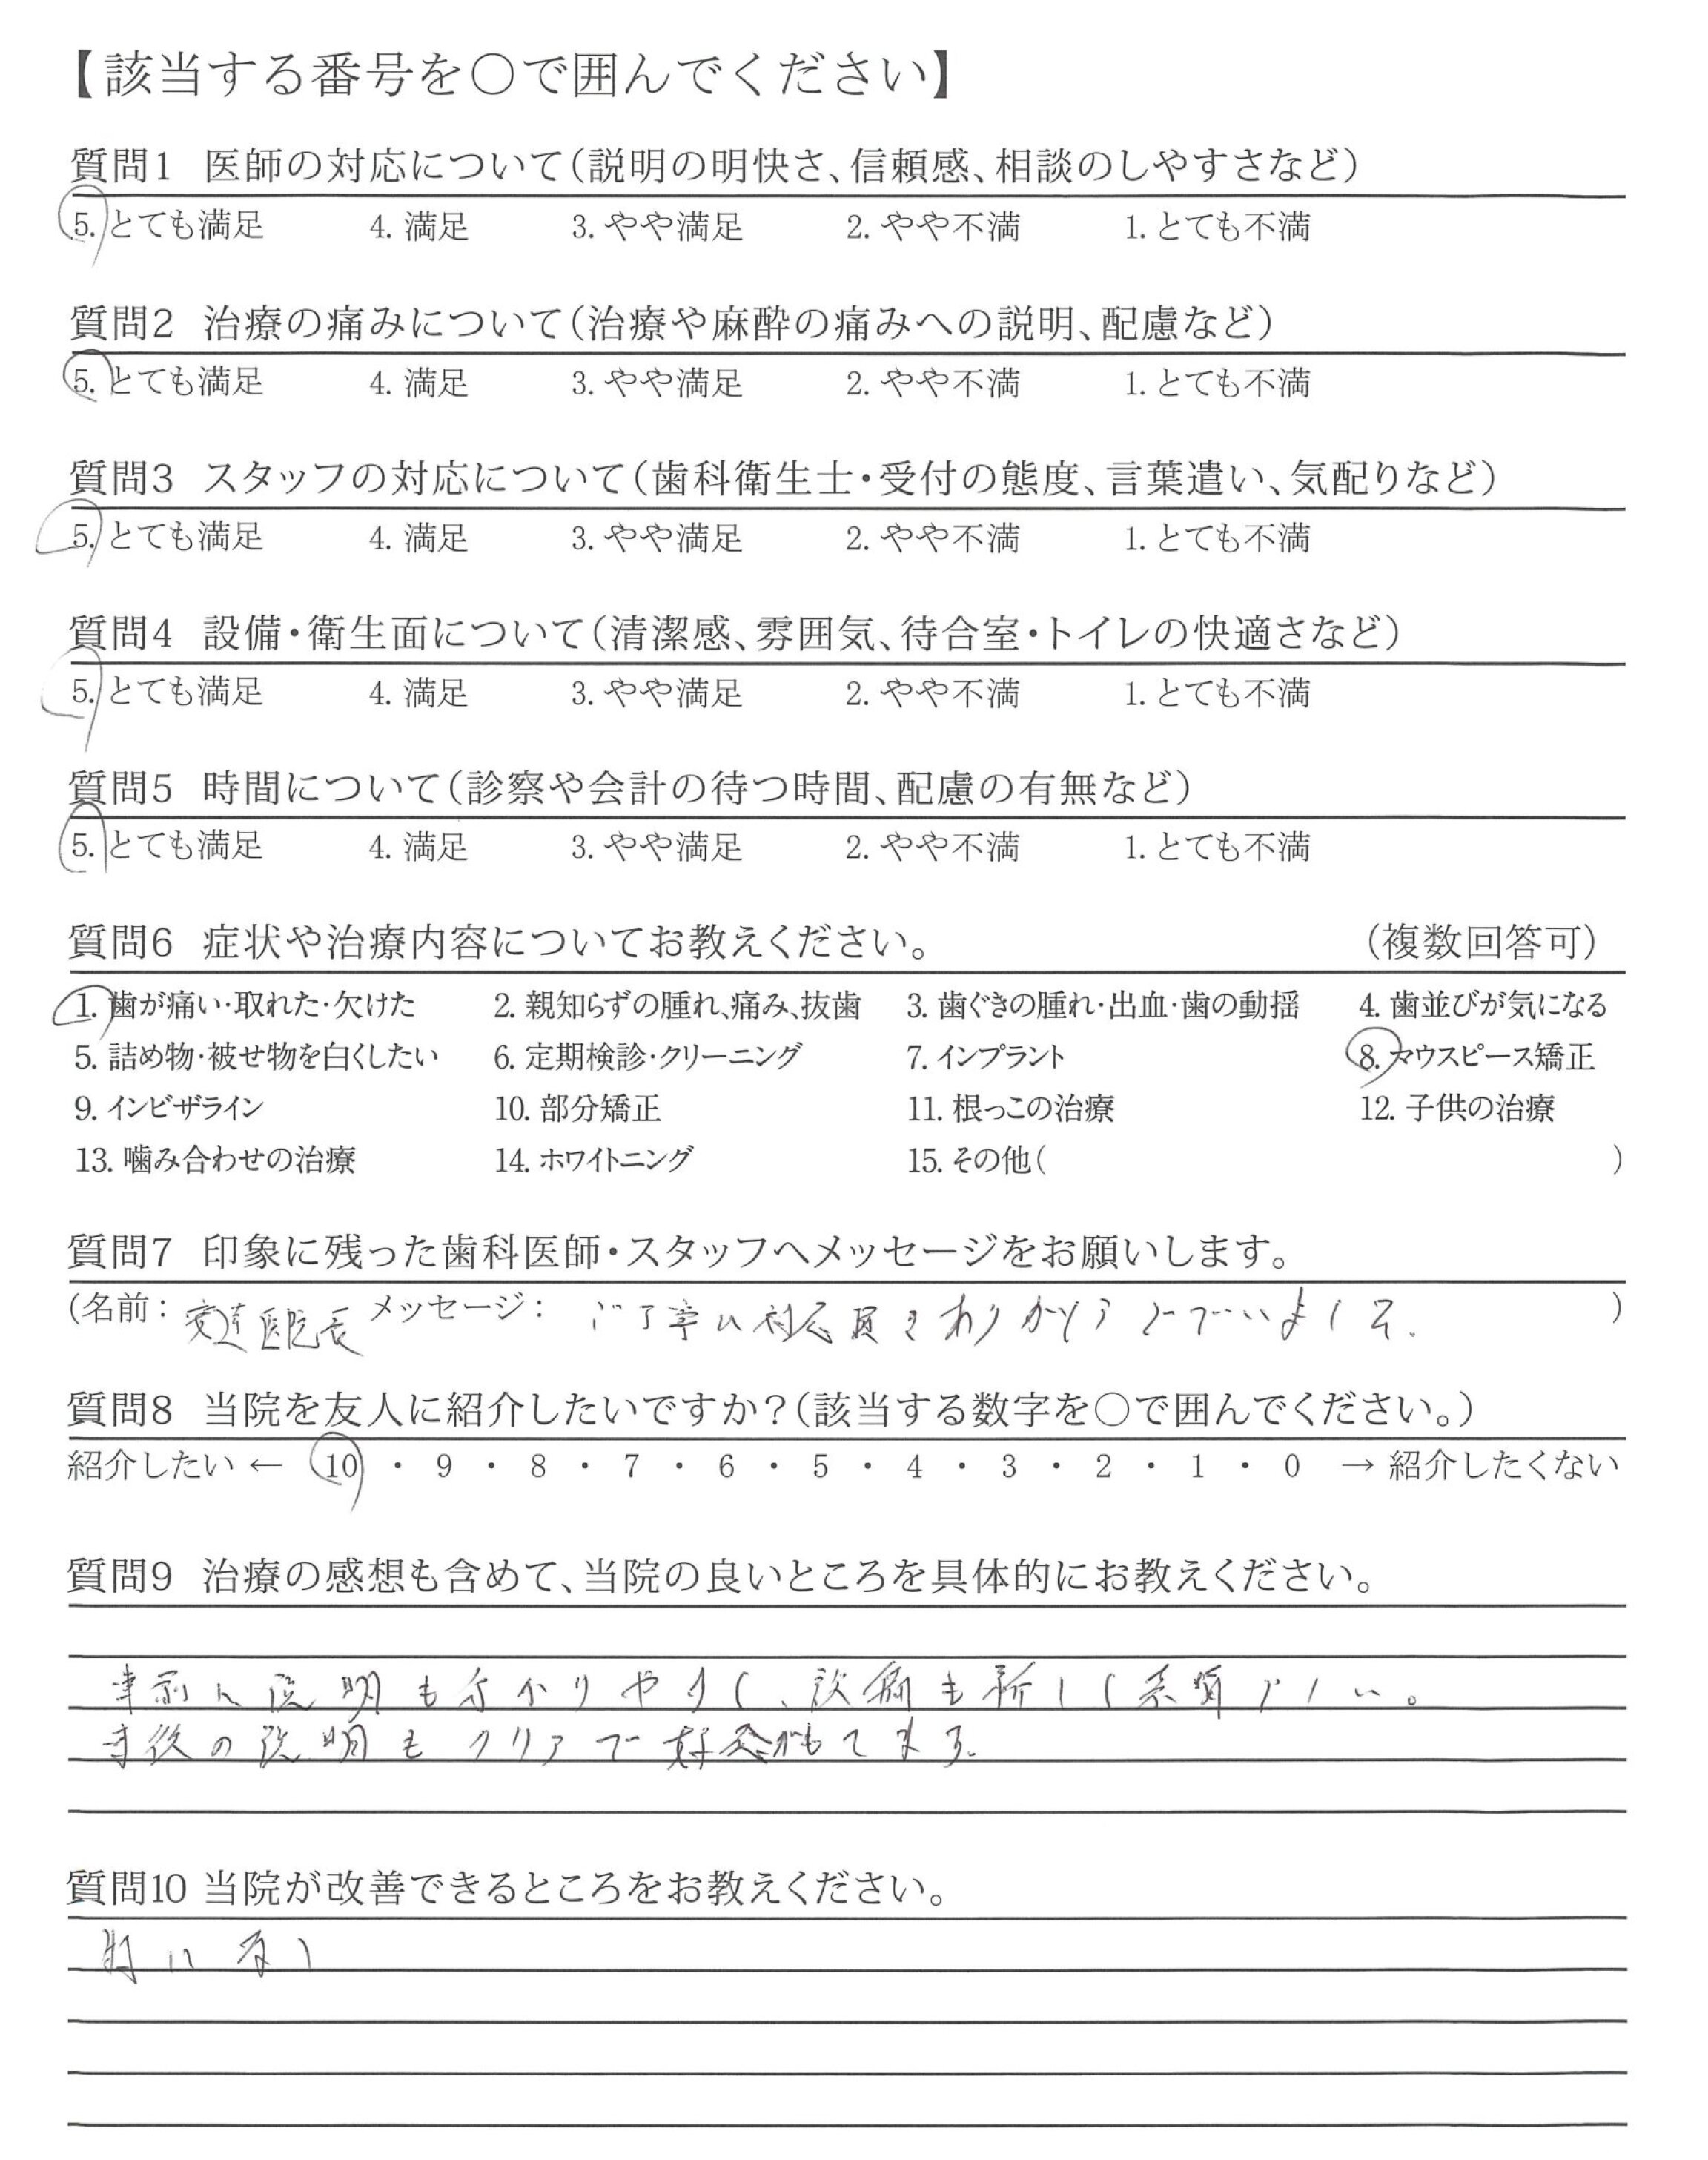 【該当する番号を〇で囲んでください】
質問1 医師の対応について(説明の明快さ、信頼感、相談のしやすさなど)
5. とても満足 4. 満足 3. やや満足 2. やや不満 1. とても不満
質問2 治療の痛みについて(治療や麻酔の痛みへの説明、配慮など)
5. とても満足 4. 満足 3. やや満足 2. やや不満 1. とても不満
質問3 スタッフの対応について(歯科衛生士・受付の態度、言葉遣い、気配りなど)
5. とても満足 4. 満足 3. やや満足 2. やや不満 1. とても不満
質問4 設備・衛生面について(清潔感、雰囲気、待合室・トイレの快適さなど)
5. とても満足 4. 満足 3. やや満足 2. やや不満 1. とても不満
質問5 時間について(診察や会計の待つ時間、配慮の有無など)
5. とても満足 4. 満足 3. やや満足 2. やや不満 1. とても不満
質問6 症状や治療内容についてお教えください。 (複数回答可)
1. 歯が痛い・取れた・欠けた 2. 親知らずの腫れ、痛み、抜歯 3. 歯ぐきの腫れ・出血・歯の動揺 4. 歯並びが気になる
5. 詰め物・被せ物を白くしたい 6. 定期検診・クリーニング 7. インプラント 8. マウスピース矯正
9. インビザライン 10. 部分矯正 11. 根っこの治療 12. 子供の治療
13. 噛み合わせの治療 14. ホワイトニング 15. その他( )
質問7 印象に残った歯科医師・スタッフへメッセージをお願いします。
(名前: 医院長 メッセージ: ご丁寧に対応頂きありがとうございました。 )
質問8 当院を友人に紹介したいですか?(該当する数字を〇で囲んでください。)
紹介したい ← 10 ・ 9 ・ 8 ・ 7 ・ 6 ・ 5 ・ 4 ・ 3 ・ 2 ・ 1 ・ 0 → 紹介したくない
質問9 治療の感想も含めて、当院の良いところを具体的にお教えください。
事前に説明も分かりやすく、設備も新しく
事後の説明もクリアで好感がもてます。
質問10 当院が改善できるところをお教えください。
特に有り